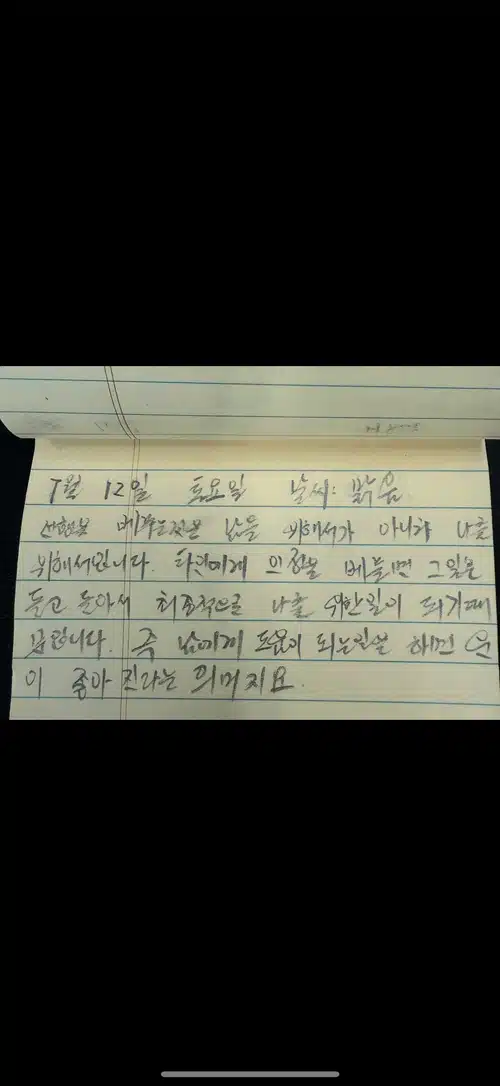 7월 12일 토요일 날씨: 맑음
선행을 베푸는것은 남을 위해서가 아니라 나를
위해서입니다. 타인에게 의행을 베풀면 그일은
돌고 돌아서 최종적으로 나를 위한일이 되기때
문입니다. 즉 남에게 도움이 되는일을 하면 운
이 좋아 진라는 의머지요.